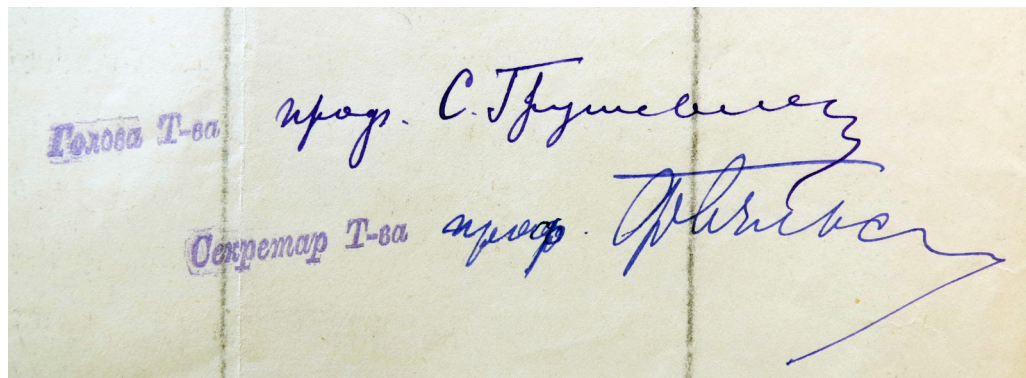 Голова Т-ва проф. С. Грушевсь
Секретар Т-ва проф.